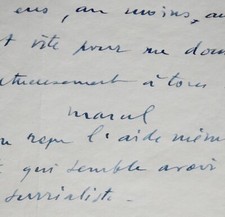 ens, au moins, au
t vite pour me don
ctueusement à tous
marcel
reçu l'aide mém
qui semble avoir
surréaliste.